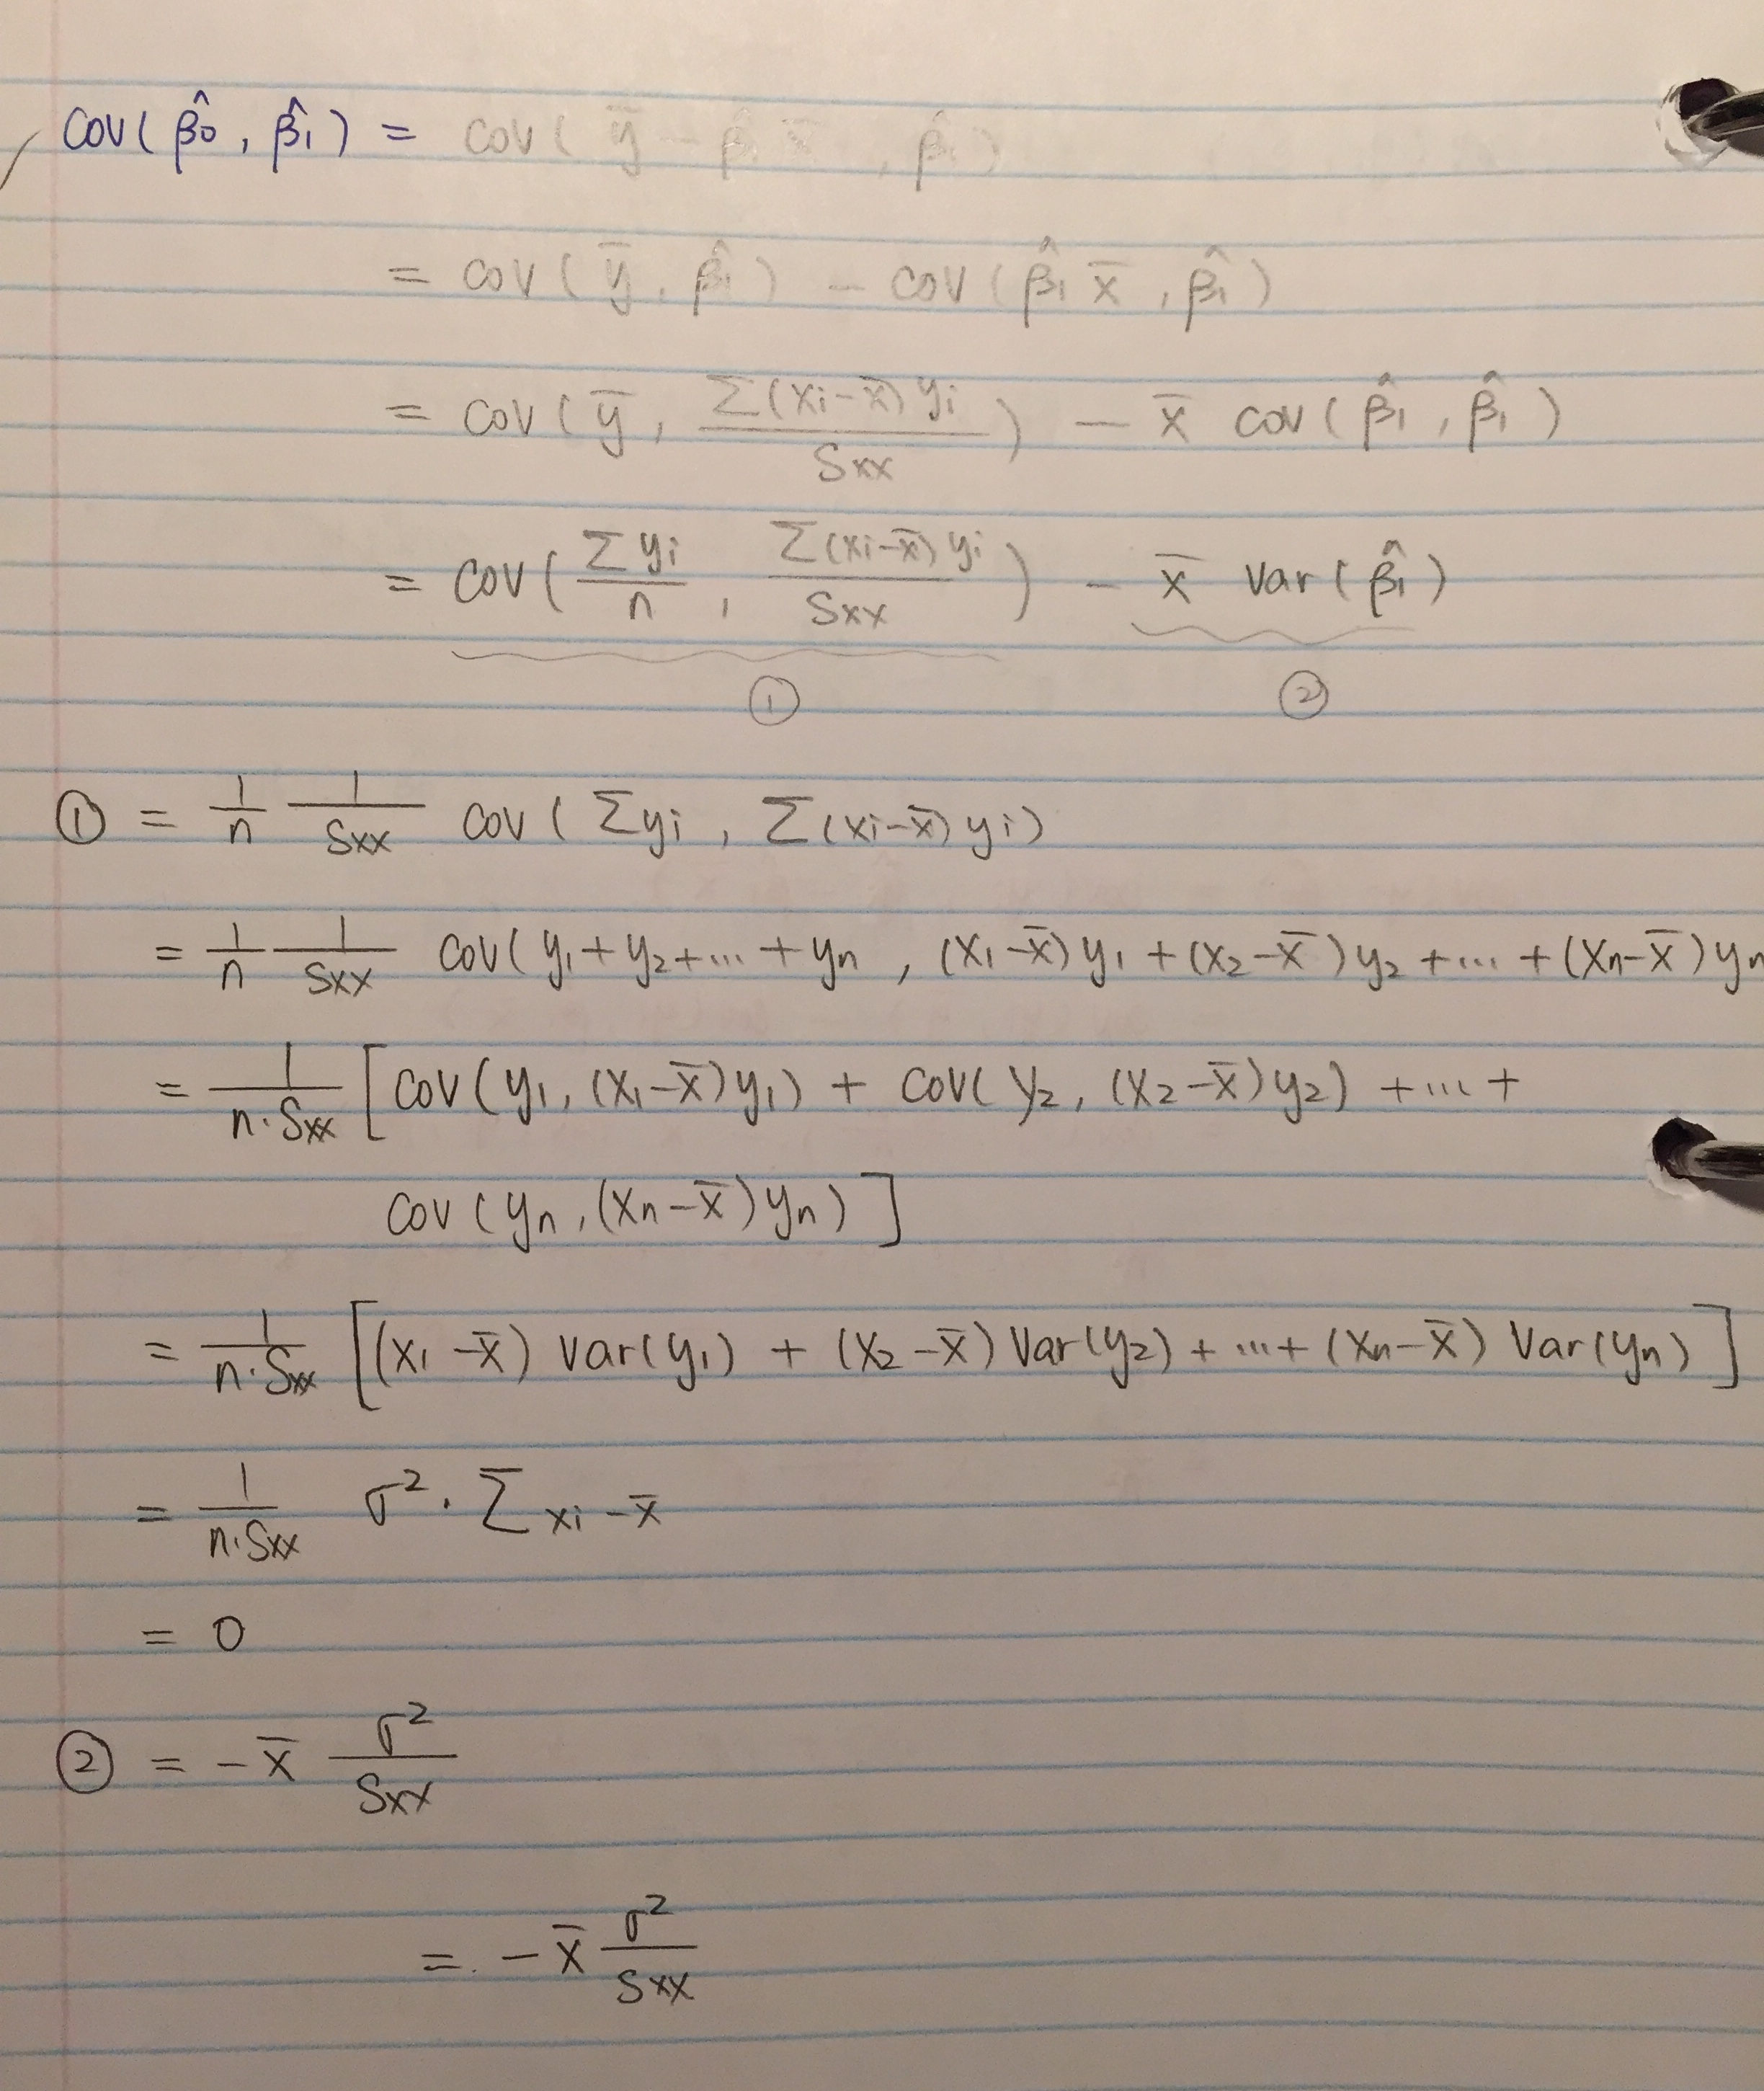 COV(β̂0, β̂1) = COV(ȳ − β̂1 x̄, β̂1)
= COV(ȳ, β̂1) − COV(β̂1 x̄, β̂1)
= COV(ȳ, Σ(xi−x̄)yi / Sxx) − x̄ COV(β̂1, β̂1)
= COV(Σyi / n, Σ(xi−x̄)yi / Sxx) − x̄ Var(β̂1)
① ②
① = 1/n 1/Sxx COV(Σyi, Σ(xi−x̄)yi)
= 1/n 1/Sxx COV(y1+y2+...+yn, (x1−x̄)y1+(x2−x̄)y2+...+(xn−x̄)yn
= 1/n·Sxx [COV(y1, (x1−x̄)y1) + COV(y2, (x2−x̄)y2) +...+
COV(yn, (xn−x̄)yn)]
= 1/n·Sxx [(x1−x̄) Var(y1) + (x2−x̄) Var(y2) +...+ (xn−x̄) Var(yn)]
= 1/n·Sxx σ²·Σxi−x̄
= 0
② = −x̄ σ²/Sxx
= −x̄ σ²/Sxx